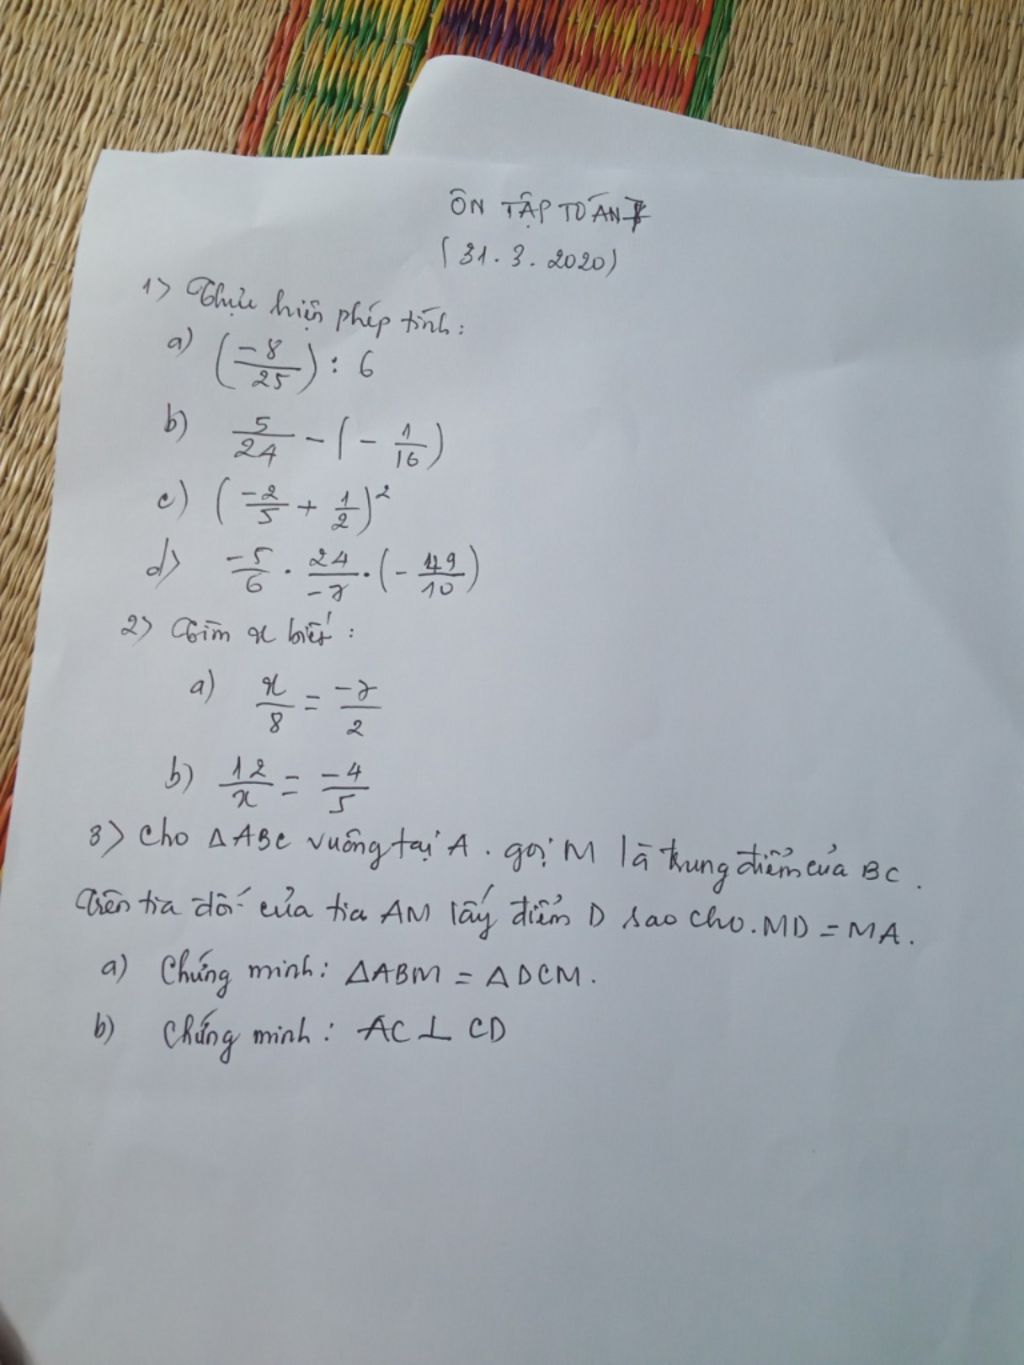 ÔN TẬP TOÁN 7
(31.3.2020)
1> Thực hiện phép tính:
a) (-8/25) : 6
b) 5/24 - (- 1/16)
c) (-2/5 + 1/2)²
d> -5/6 . 24/-7 . (- 49/10)
2> Tìm x biết:
a) x/8 = -7/2
b) 12/x = -4/5
3> Cho ΔABC vuông tại A. gọi M là trung điểm của BC.
Trên tia đối của tia AM lấy điểm D sao cho. MD = MA.
a) Chứng minh: ΔABM = ΔDCM.
b) Chứng minh: AC ⊥ CD